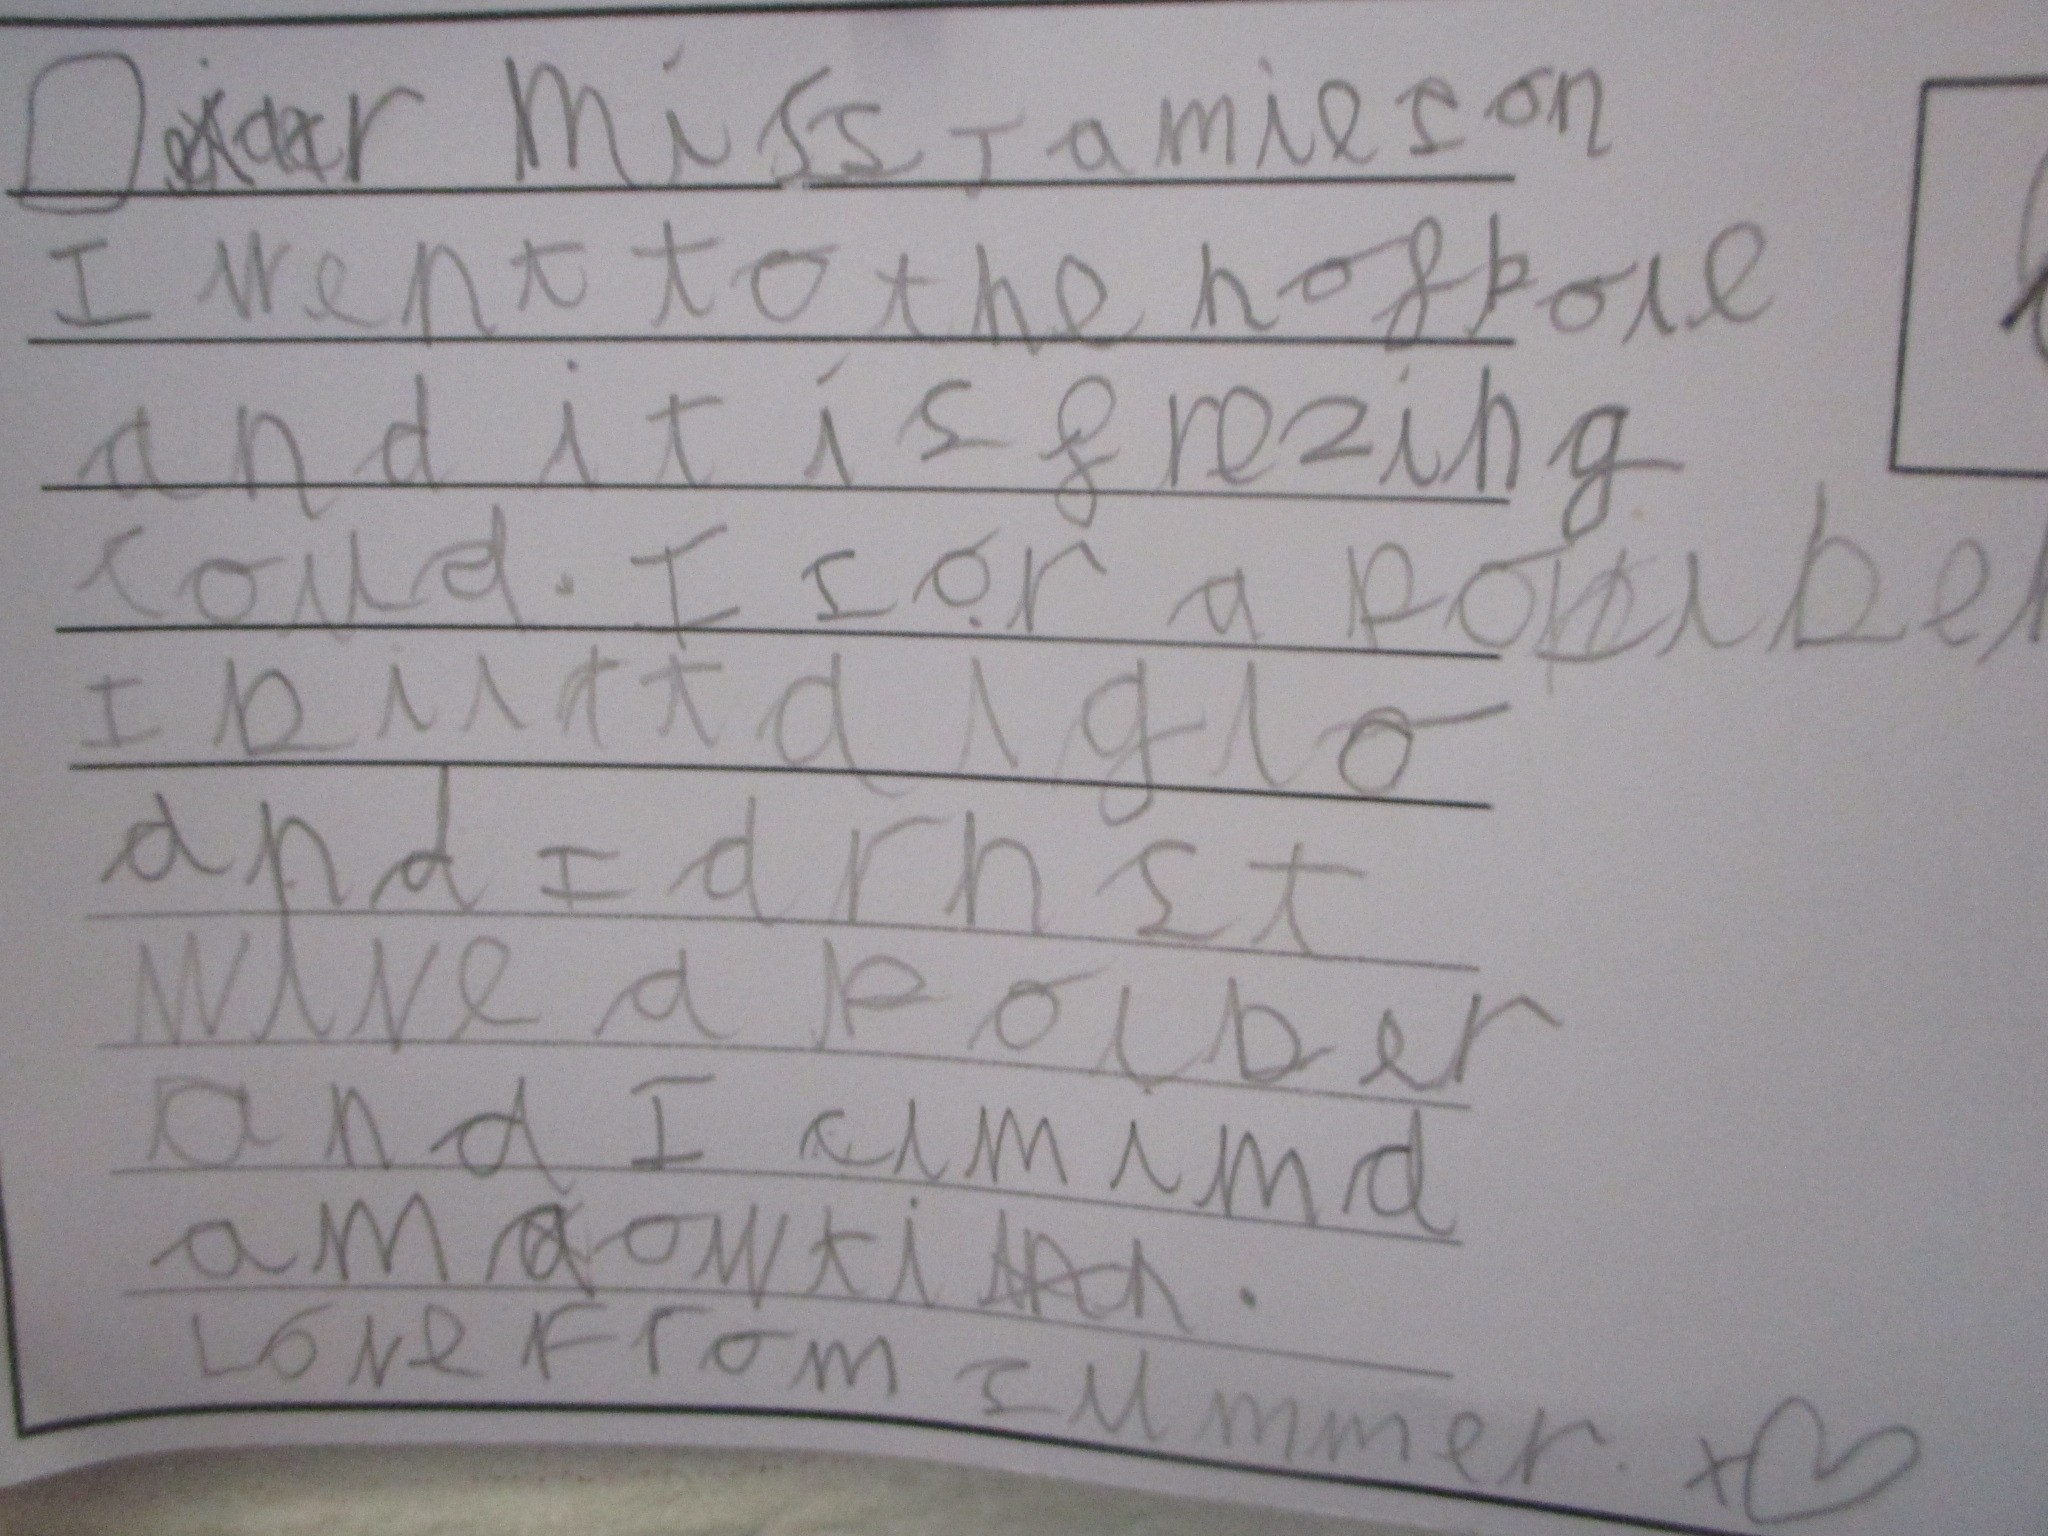 Dear Miss Jamieson
I went to the nofpole
and it is frezing
could. I sor a polber
I biltt a iglo
and I drnst
wive a polber
and I climimd
a mowtin.
Love From summer. x